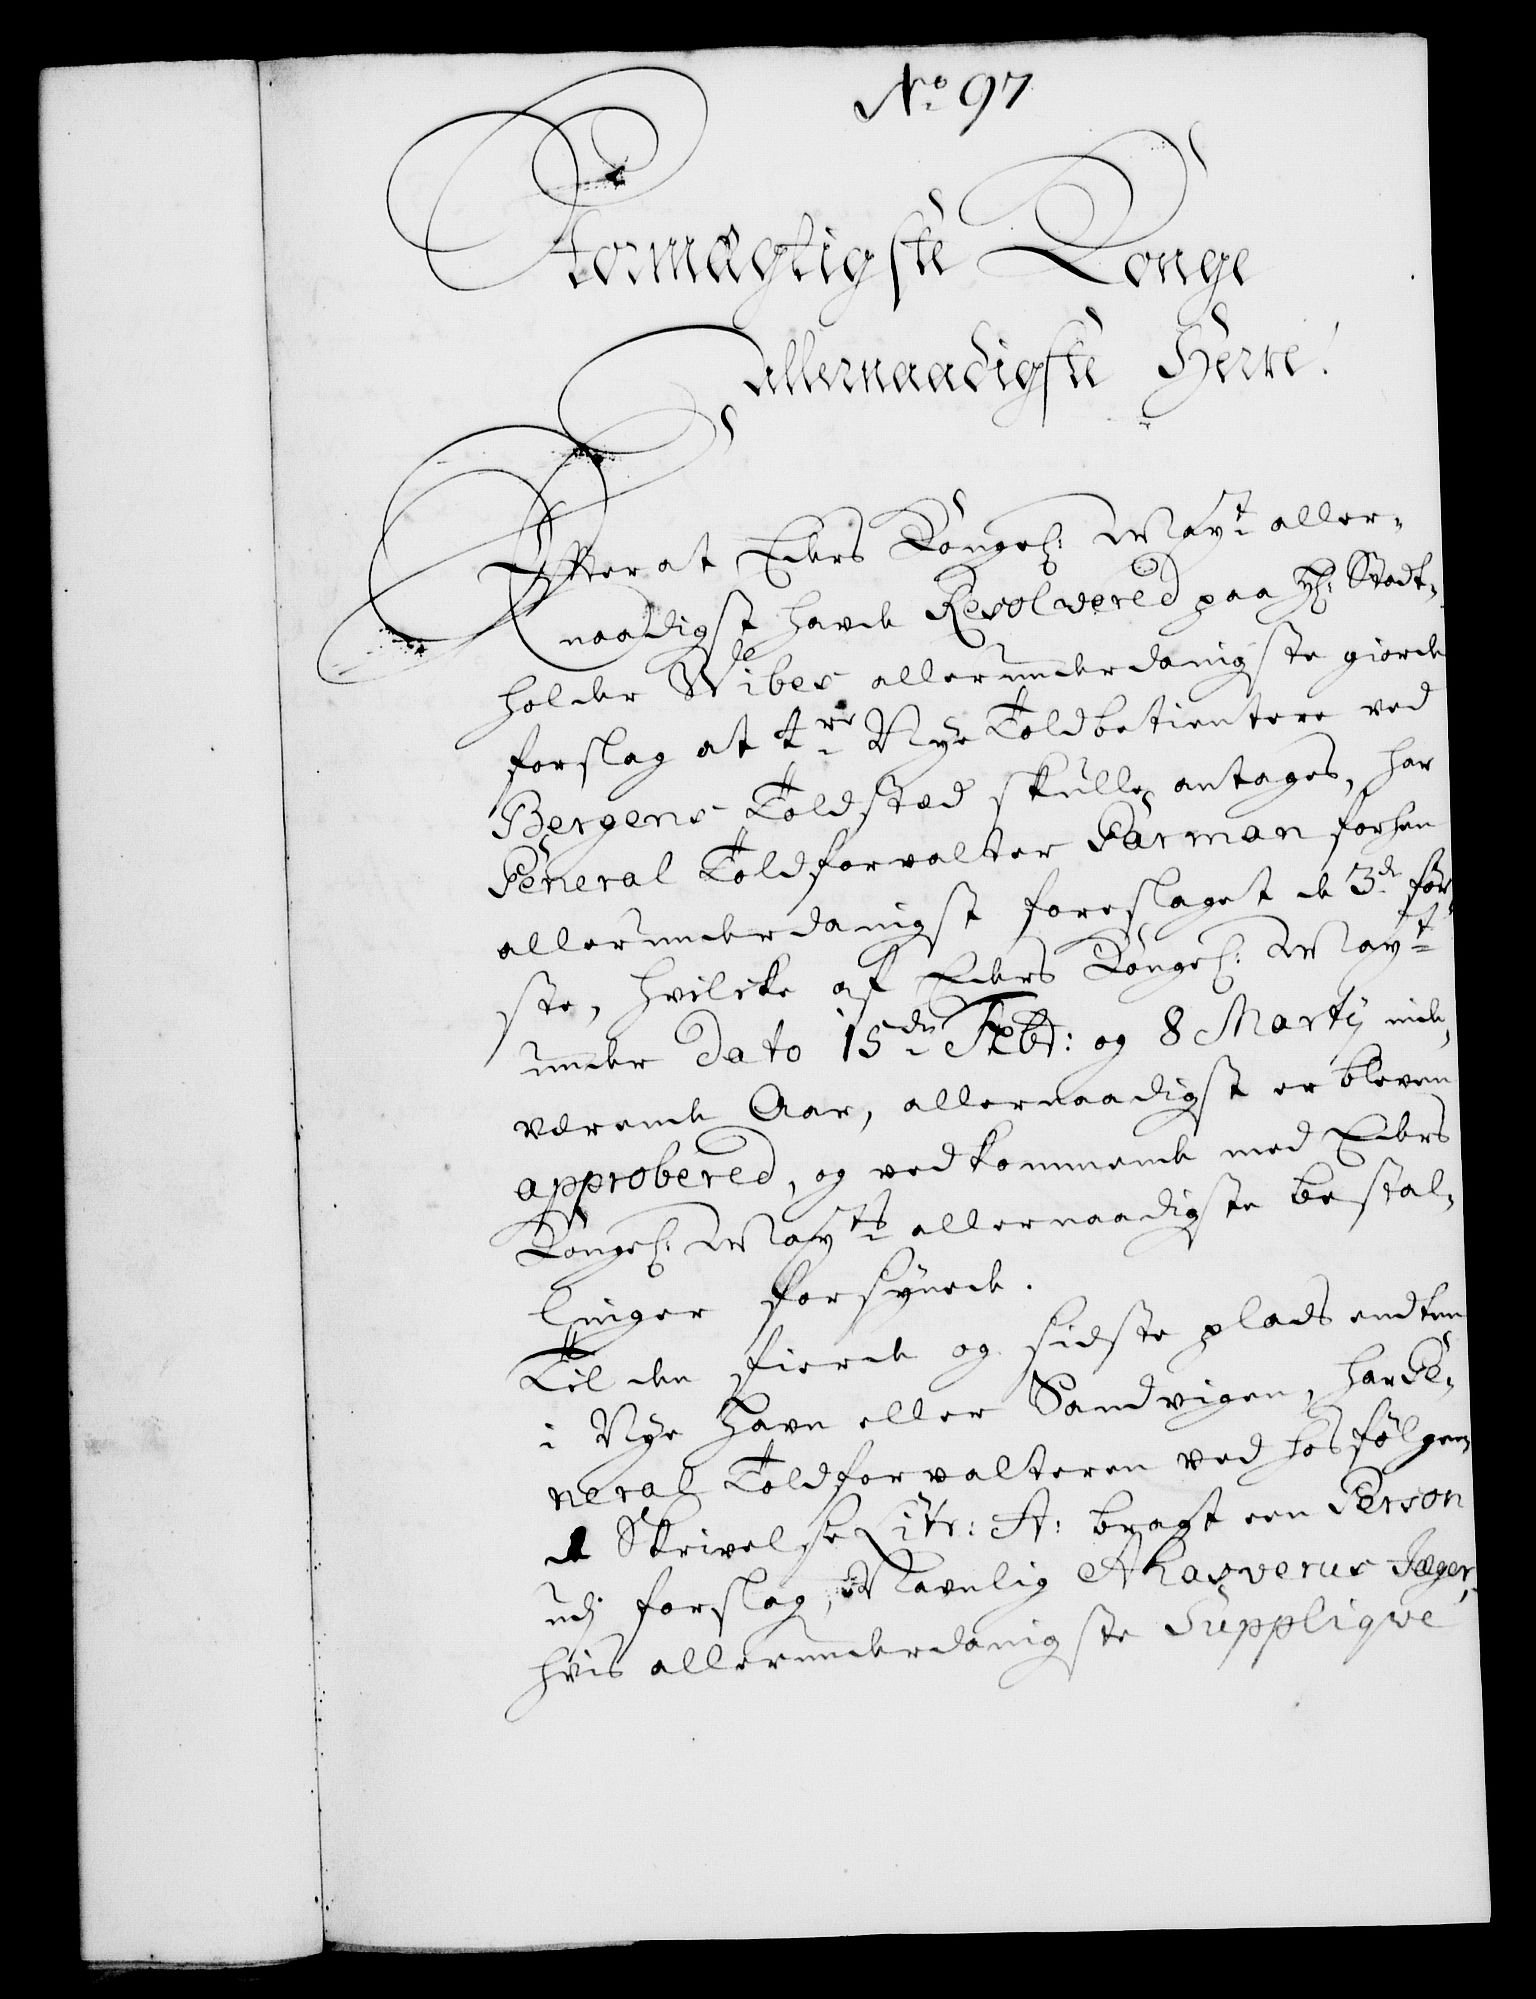 No 97
Stormægtigste Konge
allernaadigste Herre!
Efterat Eders Kongel: May:t aller-
naadigst hafde Resolvered paa H: Stadt-
holder Wibes allerunderdanigste giorde
forslag at Nye Toldbetientere ved
Bergens Toldsted skulle antages, har
General Toldforvalter Farman forhen
allerunderdanigst foreslaget de 3de før-
ste, hvilcke af Eders Kongel: May:t
under Dato 15de Febr: og 8 Martij inde-
værende Aar, allernaadigst er bleven
approbered, og vedkommende med Eders
Kongel: May:ts allernaadigste bestal-
linger forsynede.
Til den fierde og sidste plads endten
i Nye Havn eller Sandvigen, har Ge-
neral Toldforvalteren ved hosfølgen-
de Skrivelse Litr: A: bragt een Person
udj forslag, Navnlig Ahasverus Jæger,
hvis allerunderdanigste Suppliqve